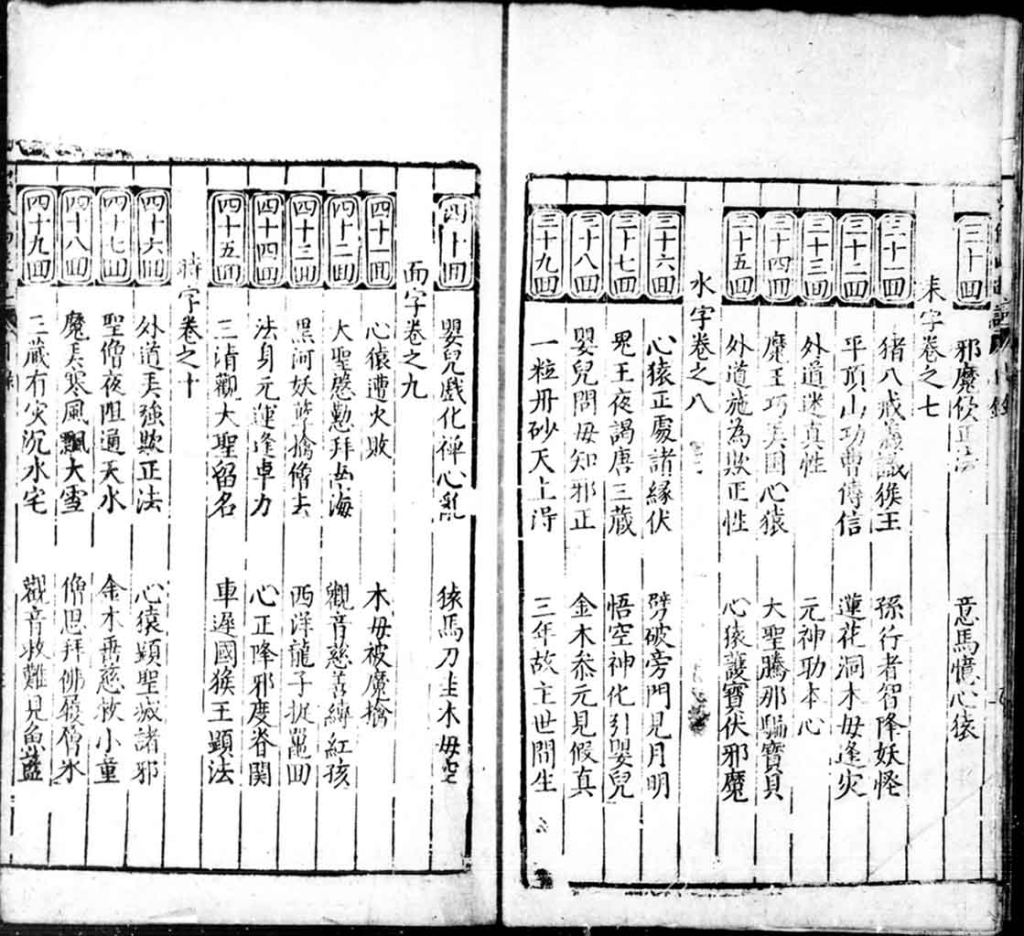 三十回 邪魔侵正法 意馬憶心猿
來字卷之七
三十一回 猪八戒義識猴王 孫行者智降妖怪
三十二回 平頂山功曹傳信 蓮花洞木母逢灾
三十三回 外道迷真性 元神功本心
三十四回 魔王巧筭困心猿 大聖騰那騙寶貝
三十五回 外道施為欺正性 心猿護寶伏邪魔
水字卷之八
三十六回 心猿正處諸緣伏 劈破旁門見月明
三十七回 鬼王夜謁唐三藏 悟空神化引嬰兒
三十八回 嬰兒問母知邪正 金木叅元見假真
三十九回 一粒丹砂天上淂 三年故主世間生
四十回 嬰兒戲化禪心亂 猿馬刀圭木母空
面字卷之九
四十一回 心猿遭火敗 木母被魔擒
四十二回 大聖慇懃拜南海 觀音慈善縛紅孩
四十三回 黑河妖孽擒僧去 西洋龍子捉鼉回
四十四回 法身元運逢車力 心正降邪度脊関
四十五回 三清觀大聖留名 車遲國猴王顯法
時字卷之十
四十六回 外道弄強欺正法 心猿顯聖滅諸邪
四十七回 聖僧夜阻通天水 金木垂慈救小童
四十八回 魔弄寒風飄大雪 僧思拜佛履層冰
四十九回 三藏有灾沉水宅 觀音救難見魚籃